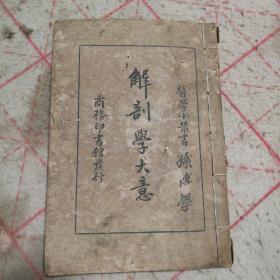 醫學小叢書 孫傳學
解剖學大意
商務印書館發行